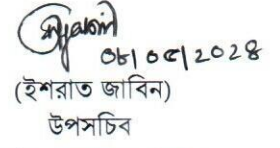 ০৮/০৫/২০২৪
(ইশরাত জাবিন)
উপসচিব